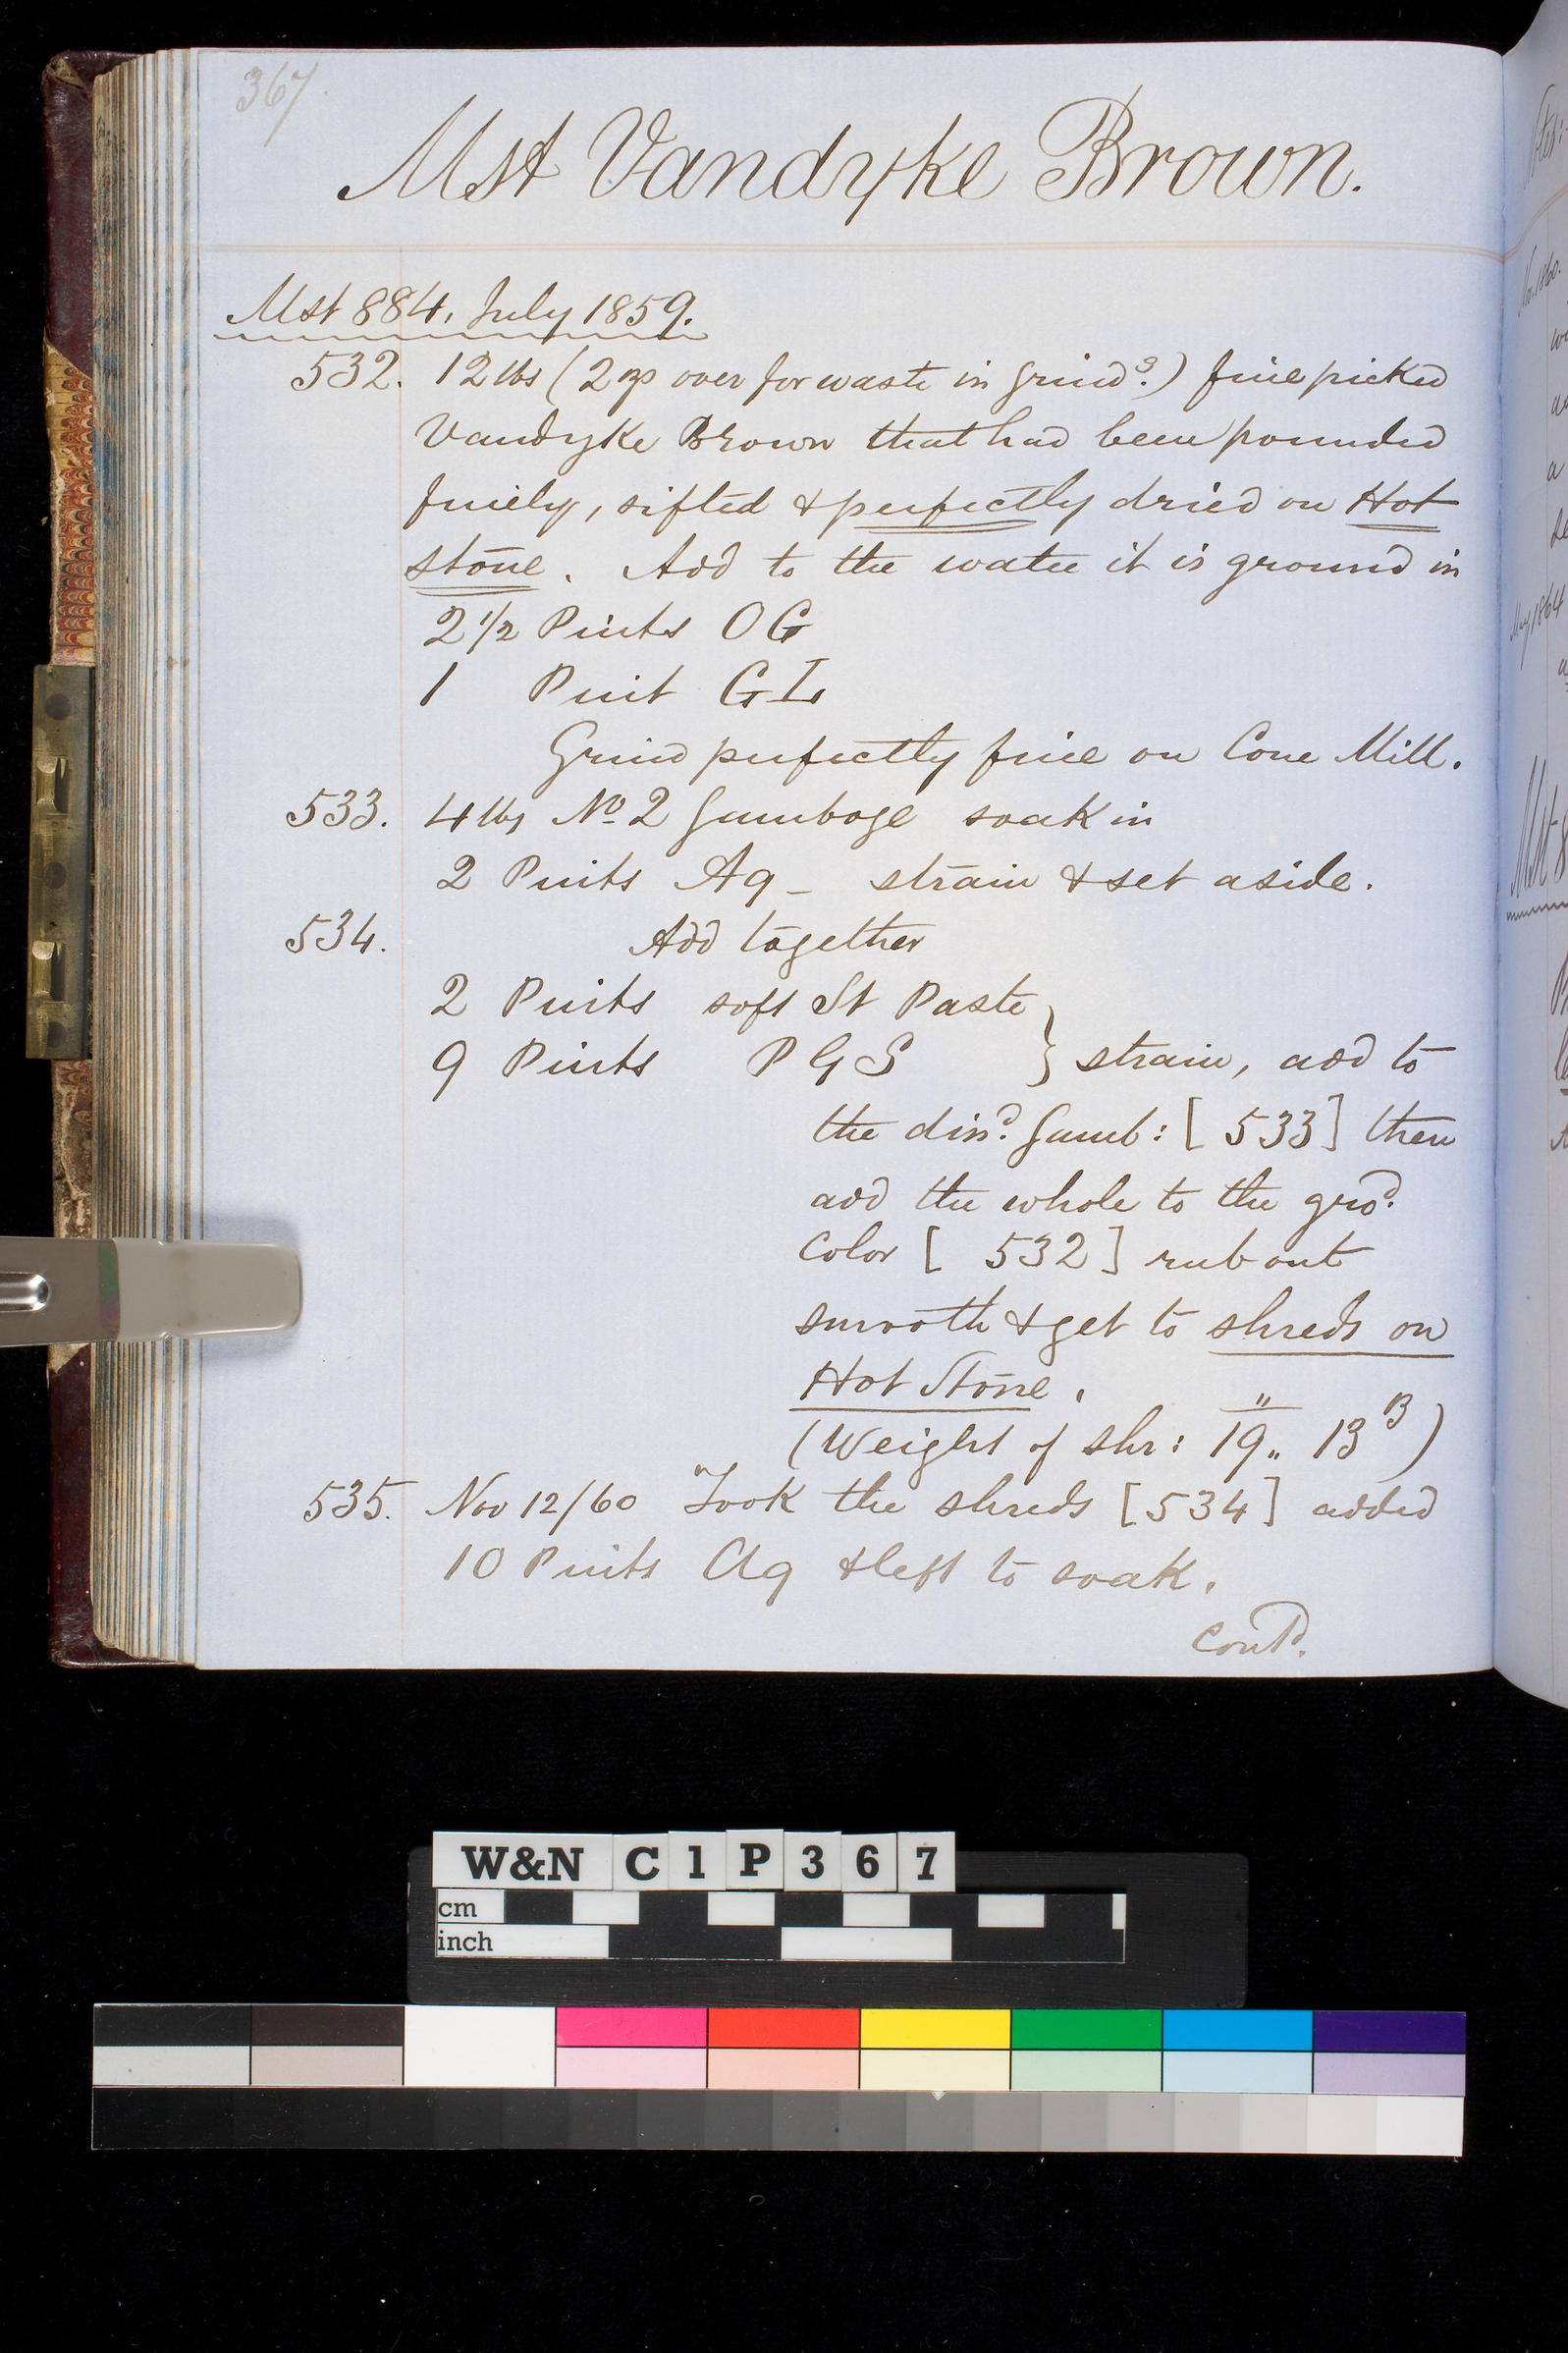 367
Mst Vandyke Brown.
Mst 884, July 1859.
532. 12 lbs (2 ozs over for waste in grindg.) fine picked
Vandyke Brown that had been pounded
finely, sifted & perfectly dried on Hot
stone. Add to the water it is ground in
2 1/2 Pints OG
1 Pint GL
Grind perfectly fine on Cone Mill.
533. 4 lbs No 2 Gamboge soak in
2 Pints Aq - strain & set aside.
534. Add together
2 Pints soft St Paste
9 Pints PGS } strain, add to
the disd. Gamb: [533] then
add the whole to the grod.
Color [532] rub out
smooth & get to shreds on
Hot Stone.
(Weight of shr: 19 „ 13)
535. Nov 12/60 Took the shreds [534] added
10 Pints Aq & left to soak.
Contd.
W&N C1P367
cm
inch